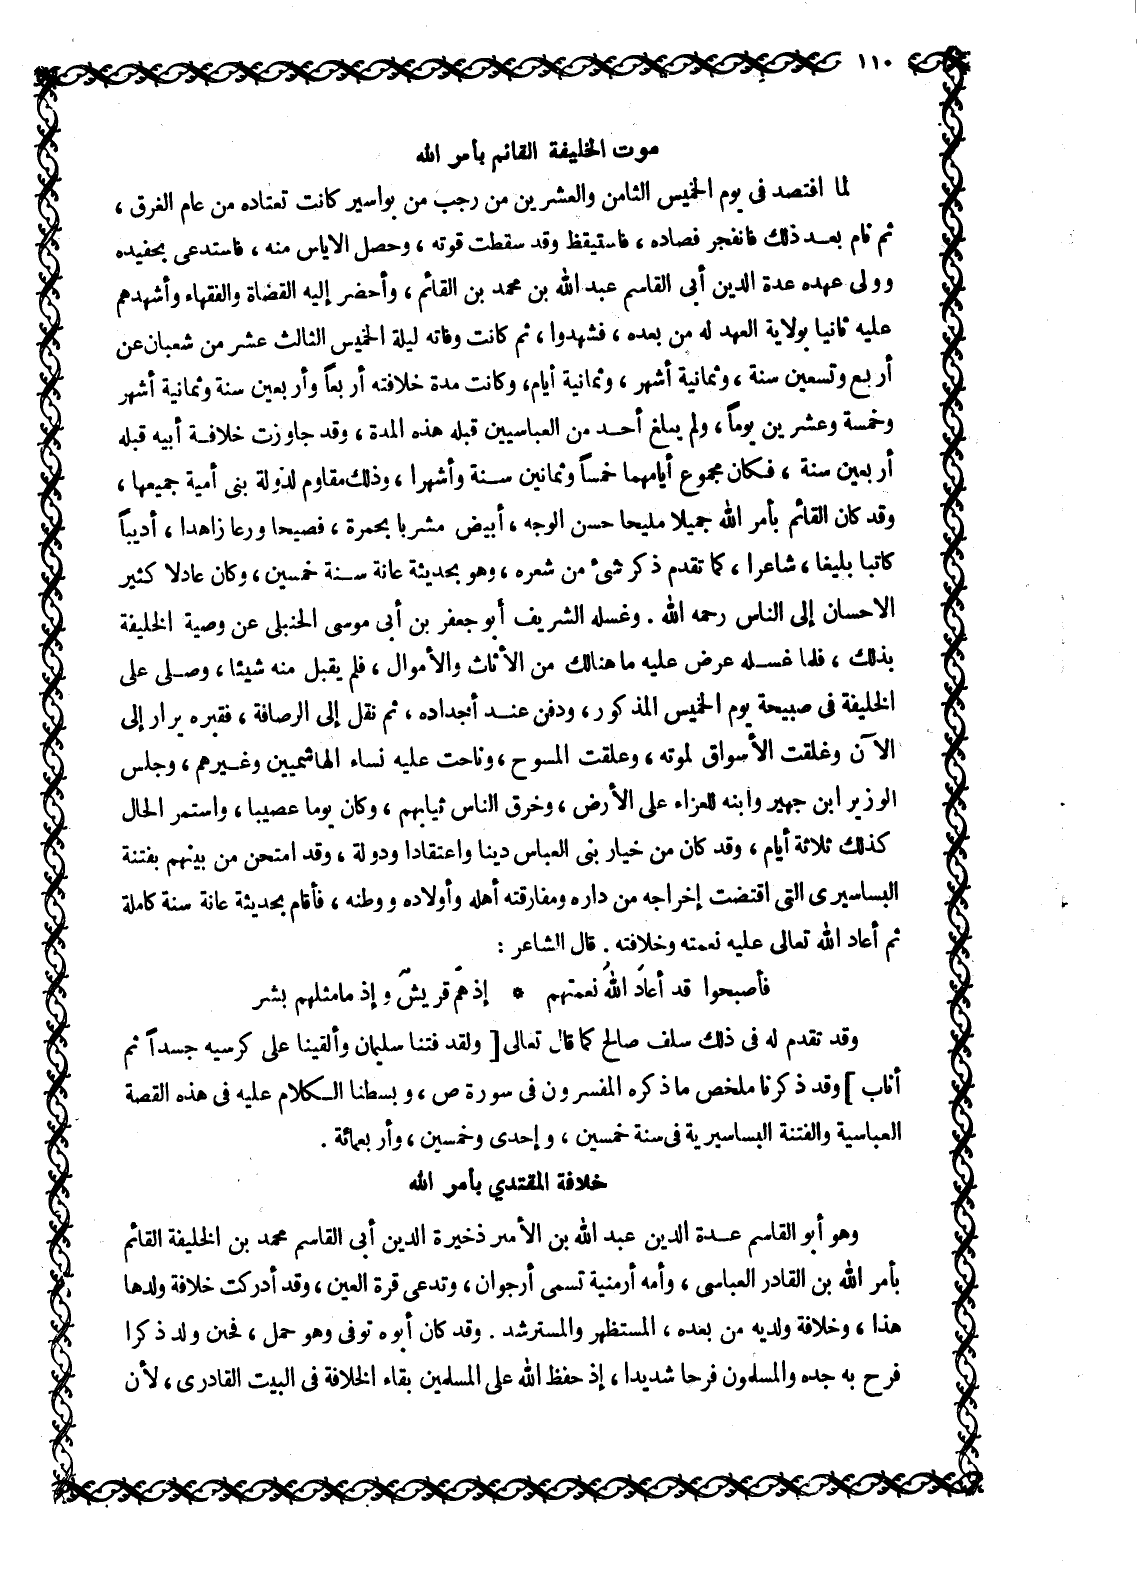 ١١٠
موت الخليفة القائم بأمر الله
لما افتصد فى يوم الخميس الثامن والعشرين من رجب من بواسير كانت تعتاده من عام الغرق ،
ثم نام بعد ذلك فانفجر فصاده ، فاستيقظ وقد سقطت قوته ، وحصل الاياس منه ، فاستدعى بحفيده
وولى عهده عدة الدين أبى القاسم عبد الله بن محمد بن القائم ، وأحضر إليه القضاة والفقهاء وأشهدهم
عليه ثانيا بولاية العهد له من بعده ، فشهدوا ، ثم كانت وفاته ليلة الخميس الثالث عشر من شعبان عن
أربع وتسعين سنة ، وثمانية أشهر ، وثمانية أيام، وكانت مدة خلافته أربعاً وأربعين سنة وثمانية أشهر
وخمسة وعشرين يوماً ، ولم يبلغ أحد من العباسيين قبله هذه المدة ، وقد جاوزت خلافة أبيه قبله
أربعين سنة ، فكان مجموع أيامهما خمساً وثمانين سنة وأشهرا ، وذلك مقاوم لدولة بنى أمية جميعها ،
وقد كان القائم بأمر الله جميلا مليحا حسن الوجه ، أبيض مشربا بحمرة ، فصيحا ورعا زاهدا ، أديباً
كاتبا بليغا ، شاعرا ، كما تقدم ذكر شئ من شعره ، وهو بحديثة عانة سنة خمسين ، وكان عادلا كثير
الاحسان إلى الناس رحمه الله . وغسله الشريف أبو جعفر بن أبى موسى الحنبلى عن وصية الخليفة
بذلك ، فلما غسله عرض عليه ما هنالك من الأثاث والأموال ، فلم يقبل منه شيئا ، وصلى على
الخليفة فى صبيحة يوم الخميس المذكور ، ودفن عند أجداده ، ثم نقل إلى الرصافة ، فقبره يزار إلى
الآن وغلقت الأسواق لموته ، وعلقت المسوح ، وناحت عليه نساء الهاشميين وغيرهم ، وجلس
الوزير ابن جهير وابنه للعزاء على الأرض ، وخرق الناس ثيابهم ، وكان يوما عصيبا ، واستمر الحال
كذلك ثلاثة أيام ، وقد كان من خيار بنى العباس دينا واعتقادا ودولة ، وقد امتحن من بينهم بفتنة
البساسيرى التى اقتضت إخراجه من داره ومفارقته أهله وأولاده ووطنه ، فأقام بحديثة عانة سنة كاملة
ثم أعاد الله تعالى عليه نعمته وخلافته . قال الشاعر :
فأصبحوا قد أعادَ اللهُ نعمتهم * إذ همْ قريشٌ وإذ ما مثلهم بشر
وقد تقدم له فى ذلك سلف صالح كما قال تعالى [ ولقد فتنا سليمان وألقينا على كرسيه جسداً ثم
أناب ] وقد ذكرنا ملخص ما ذكره المفسرون فى سورة ص ، وبسطنا الكلام عليه فى هذه القصة
العباسية والفتنة البساسيرية فى سنة خمسين ، وإحدى وخمسين ، وأربعمائة .
خلافة المقتدي بأمر الله
وهو أبو القاسم عدة الدين عبد الله بن الأمير ذخيرة الدين أبى القاسم محمد بن الخليفة القائم
بأمر الله بن القادر العباسى ، وأمه أرمنية تسمى أرجوان ، وتدعى قرة العين ، وقد أدركت خلافة ولدها
هذا ، وخلافة ولديه من بعده ، المستظهر والمسترشد . وقد كان أبوه توفى وهو حمل ، فحين ولد ذكرا
فرح به جده والمسلمون فرحا شديدا ، إذ حفظ الله على المسلمين بقاء الخلافة فى البيت القادرى ، لأن